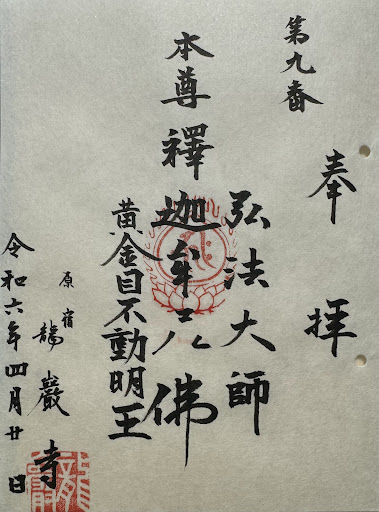 奉拝
第九番
弘法大師
本尊釋迦牟尼佛
黄金目不動明王
原宿 龍巖寺
令和六年四月廿日